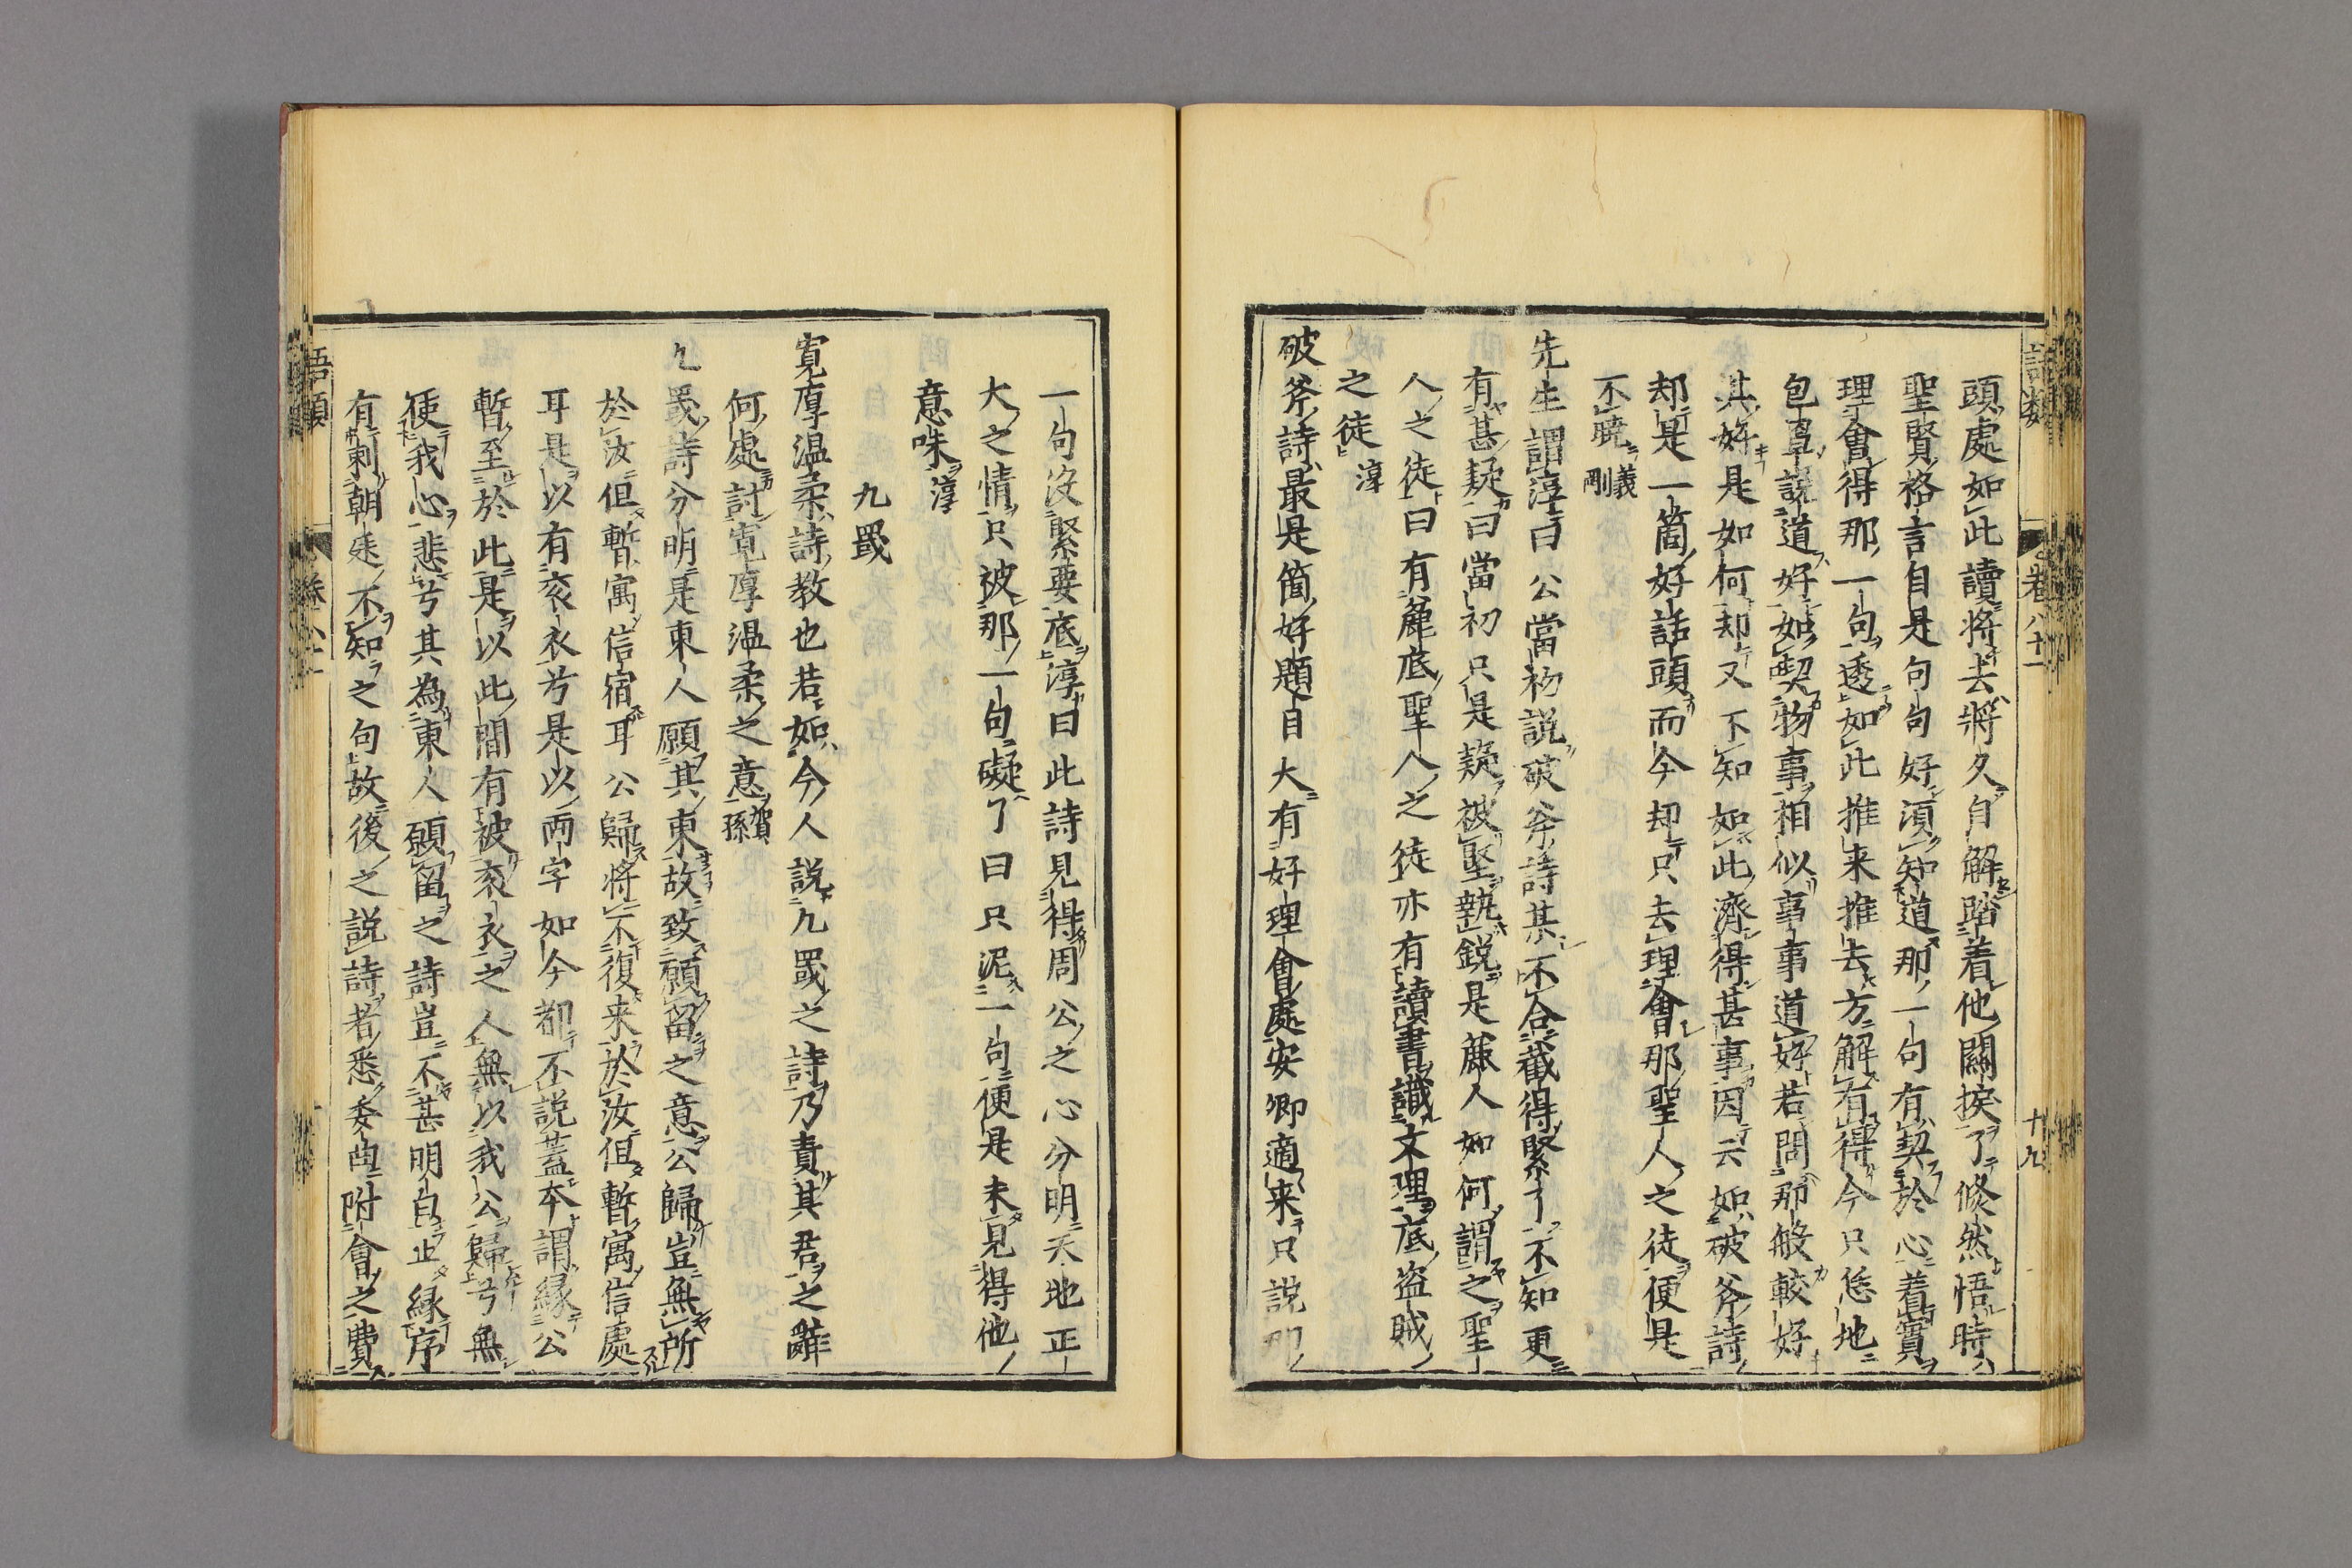 頭處如此讀將去將久自解踏着他關捩了倐然悟時
聖賢格言自是句句好須知道那一句有契於心着實
理會得那一句透如此推来推去方解有得今只恁地
包罩說道好如喫物事相似事事道好若問那般較好
其好是如何却又不知如此濟得甚事因云如破斧詩
却是一箇好話頭而今却只去理會那聖人之徒便是
不曉義剛
先生謂淳曰公當初説破斧詩某不合截得緊了不知更
有甚疑曰當初只是疑被堅執鋭是麄人如何謂之聖
人之徒曰有麄底聖人之徒亦有讀書識文理底盗賊
之徒淳
破斧詩最是箇好題目大有好理會處安卿適来只説那
一句没緊要底淳曰此詩見得周公之心分明天地正
大之情只被那一句礙了曰只泥一句便是未見得他
意味淳
九罭
寛厚温柔詩教也若如今人説九罭之詩乃責其君之辭
何處討寛厚温柔之意賀孫
九罭詩分明是東人願其東故致願留之意公歸豈無所
於汝但暫寓信宿耳公歸將不復来於汝但暫寓信處
耳是以有衮衣兮是以両字如今都不説蓋本謂縁公
暫至於此是以此間有被衮衣之人無以我公歸兮無
使我心悲兮其為東人願留之詩豈不甚明白止縁序
有刺朝廷不知之句故後之説詩者悉委曲附會之費
語類 卷八十一 十九